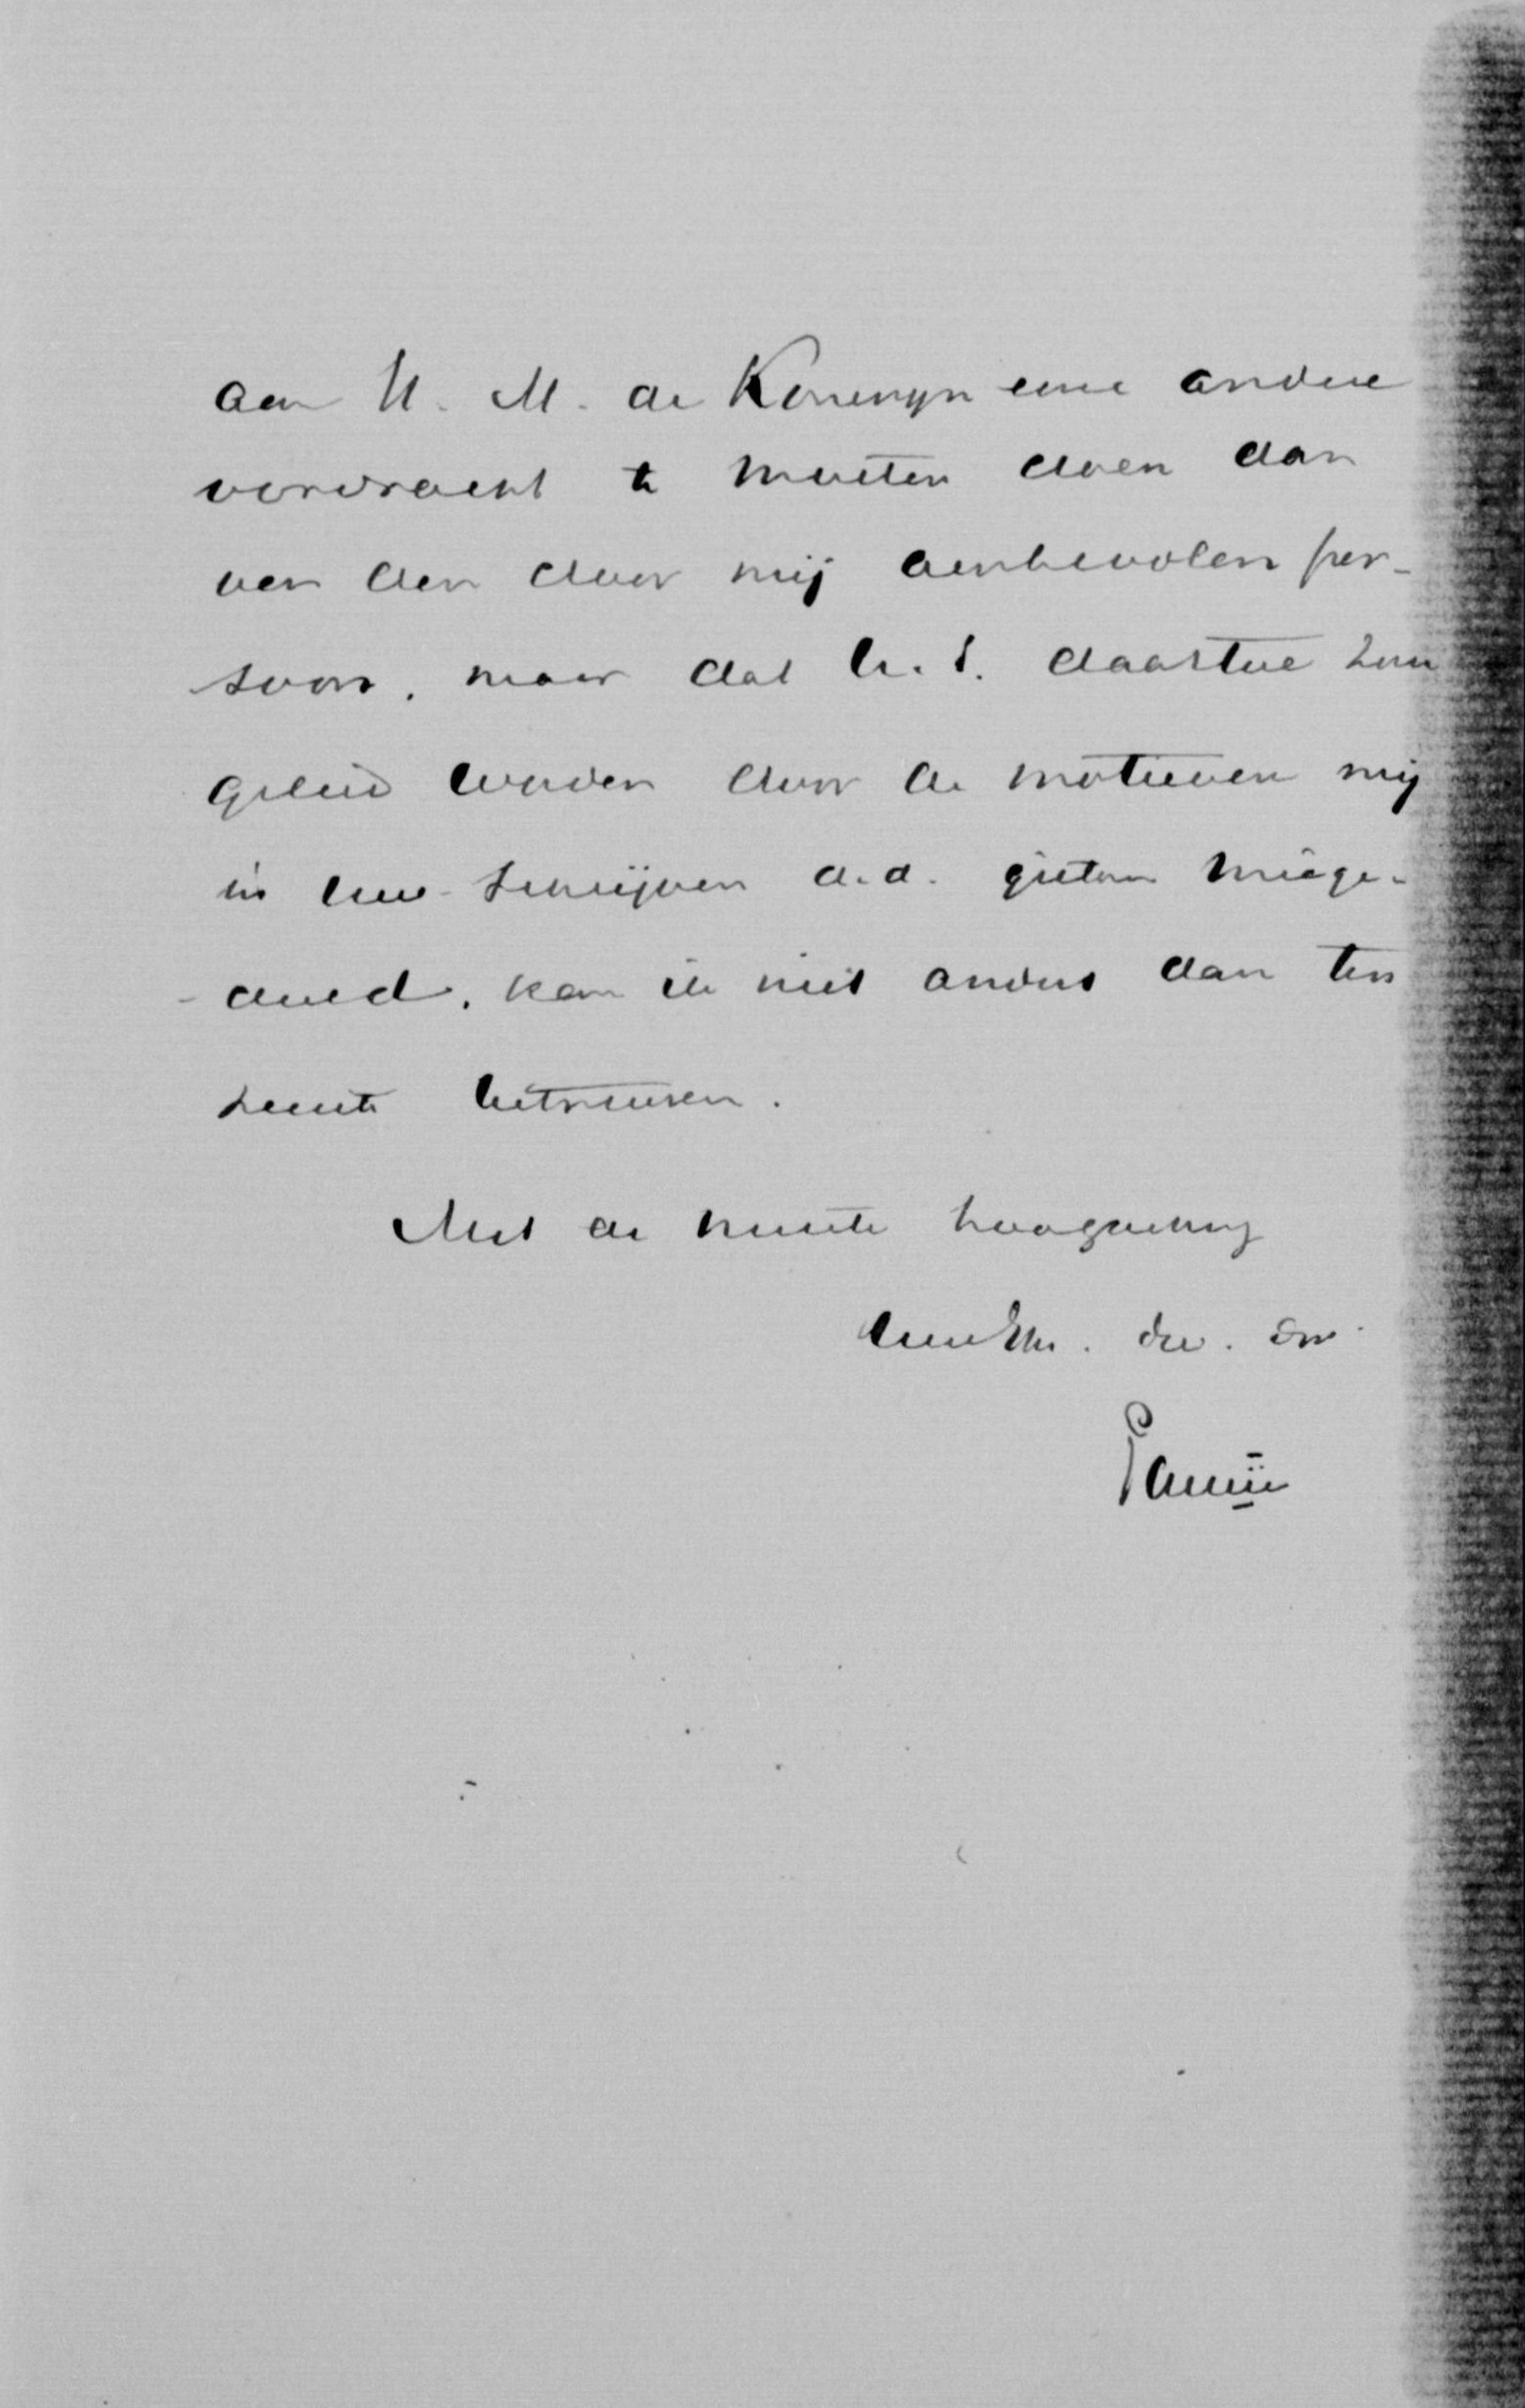 aan H. M. de Koningin eene andere
voordracht te moeten doen dan
van den door mij aanbevolen per-
soon, maar dat U. E. daartoe zou
geleid worden door de motieven mij
in Uw schrijven d.d. gisteren meege-
deeld, kan ik niet anders dan ten
zeerste betreuren.
Met de meeste hoogachting
Uw Ex. dw. dr.